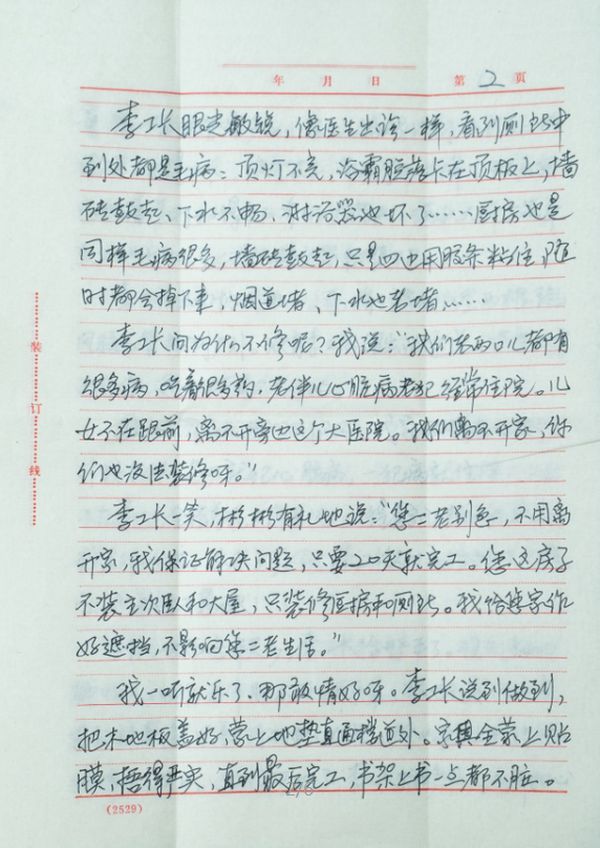 年 月 日 第2页
李工长眼光敏锐，像医生出诊一样，看到厕所中
到处都是毛病：顶灯不亮，浴霸脏落卡在顶板上，墙
砖鼓起、下水不畅、淋浴器也坏了……厨房也是
同样毛病很多，墙砖鼓起，只是四边用胶条粘住，随
时都会掉下来，烟道堵、下水也老堵……
李工长问为什么不修呢？我说：“我们老两口儿都有
很多病，吃着很多药，老伴儿心脏病老犯经常住院。儿
女不在跟前，离不开旁边这个大医院。我们离不开家，你
们也没法装修呀。”
李工长一笑，彬彬有礼地说：“您二老别急，不用离
开家，我保证解决问题，只要20天就完工。您这房子
不装主次卧和大屋，只装修厨房和厕所。我给您家作
好遮挡，不影响您二老生活。”
我一听就乐了，那敢情好呀。李工长说到做到，
把木地板盖好，蒙上地垫直通楼道外。家具全蒙上贴
膜，捂得严实，直到最后完工，书架上书一点都不脏。
装
订
线
(2529)